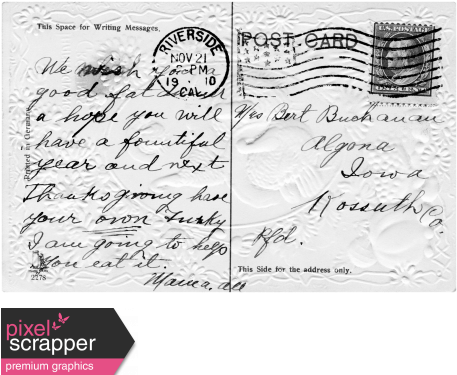 This Space for Writing Messages.
We wish you a
good & fat
a hope you will
have a fountiful
year and next
Thanksgiving have
your own Turky
I am going to help
you eat it.
Mama,
Printed in Germany
2278
RIVERSIDE
NOV 21
PM
19 10
CAL.
POST CARD
U.S. POSTAGE
Mrs Bert Buchanan
Algona
Iowa
Kossuth Co.
Rfd.
This Side for the address only.
pixel
scrapper
premium graphics